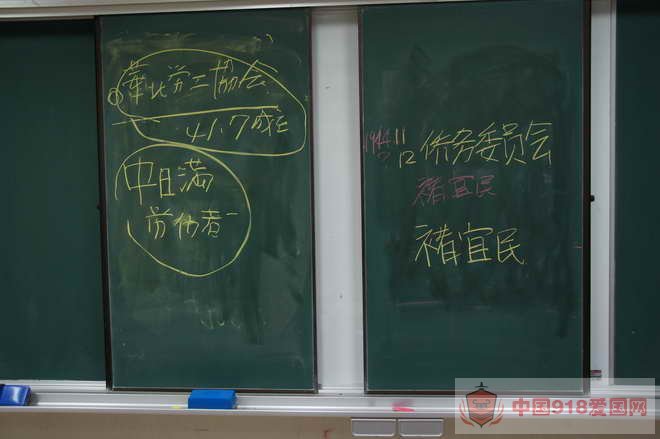 華北労工協会
41.7成立
中日満
労働者
1944.11
12 侨务委员会
褚宜民
褚宜民
中国918爱国网